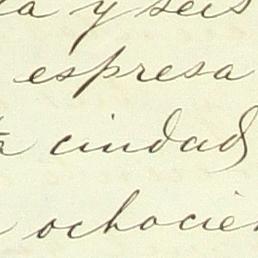 a y seis
espresa
ciudad
ochocien